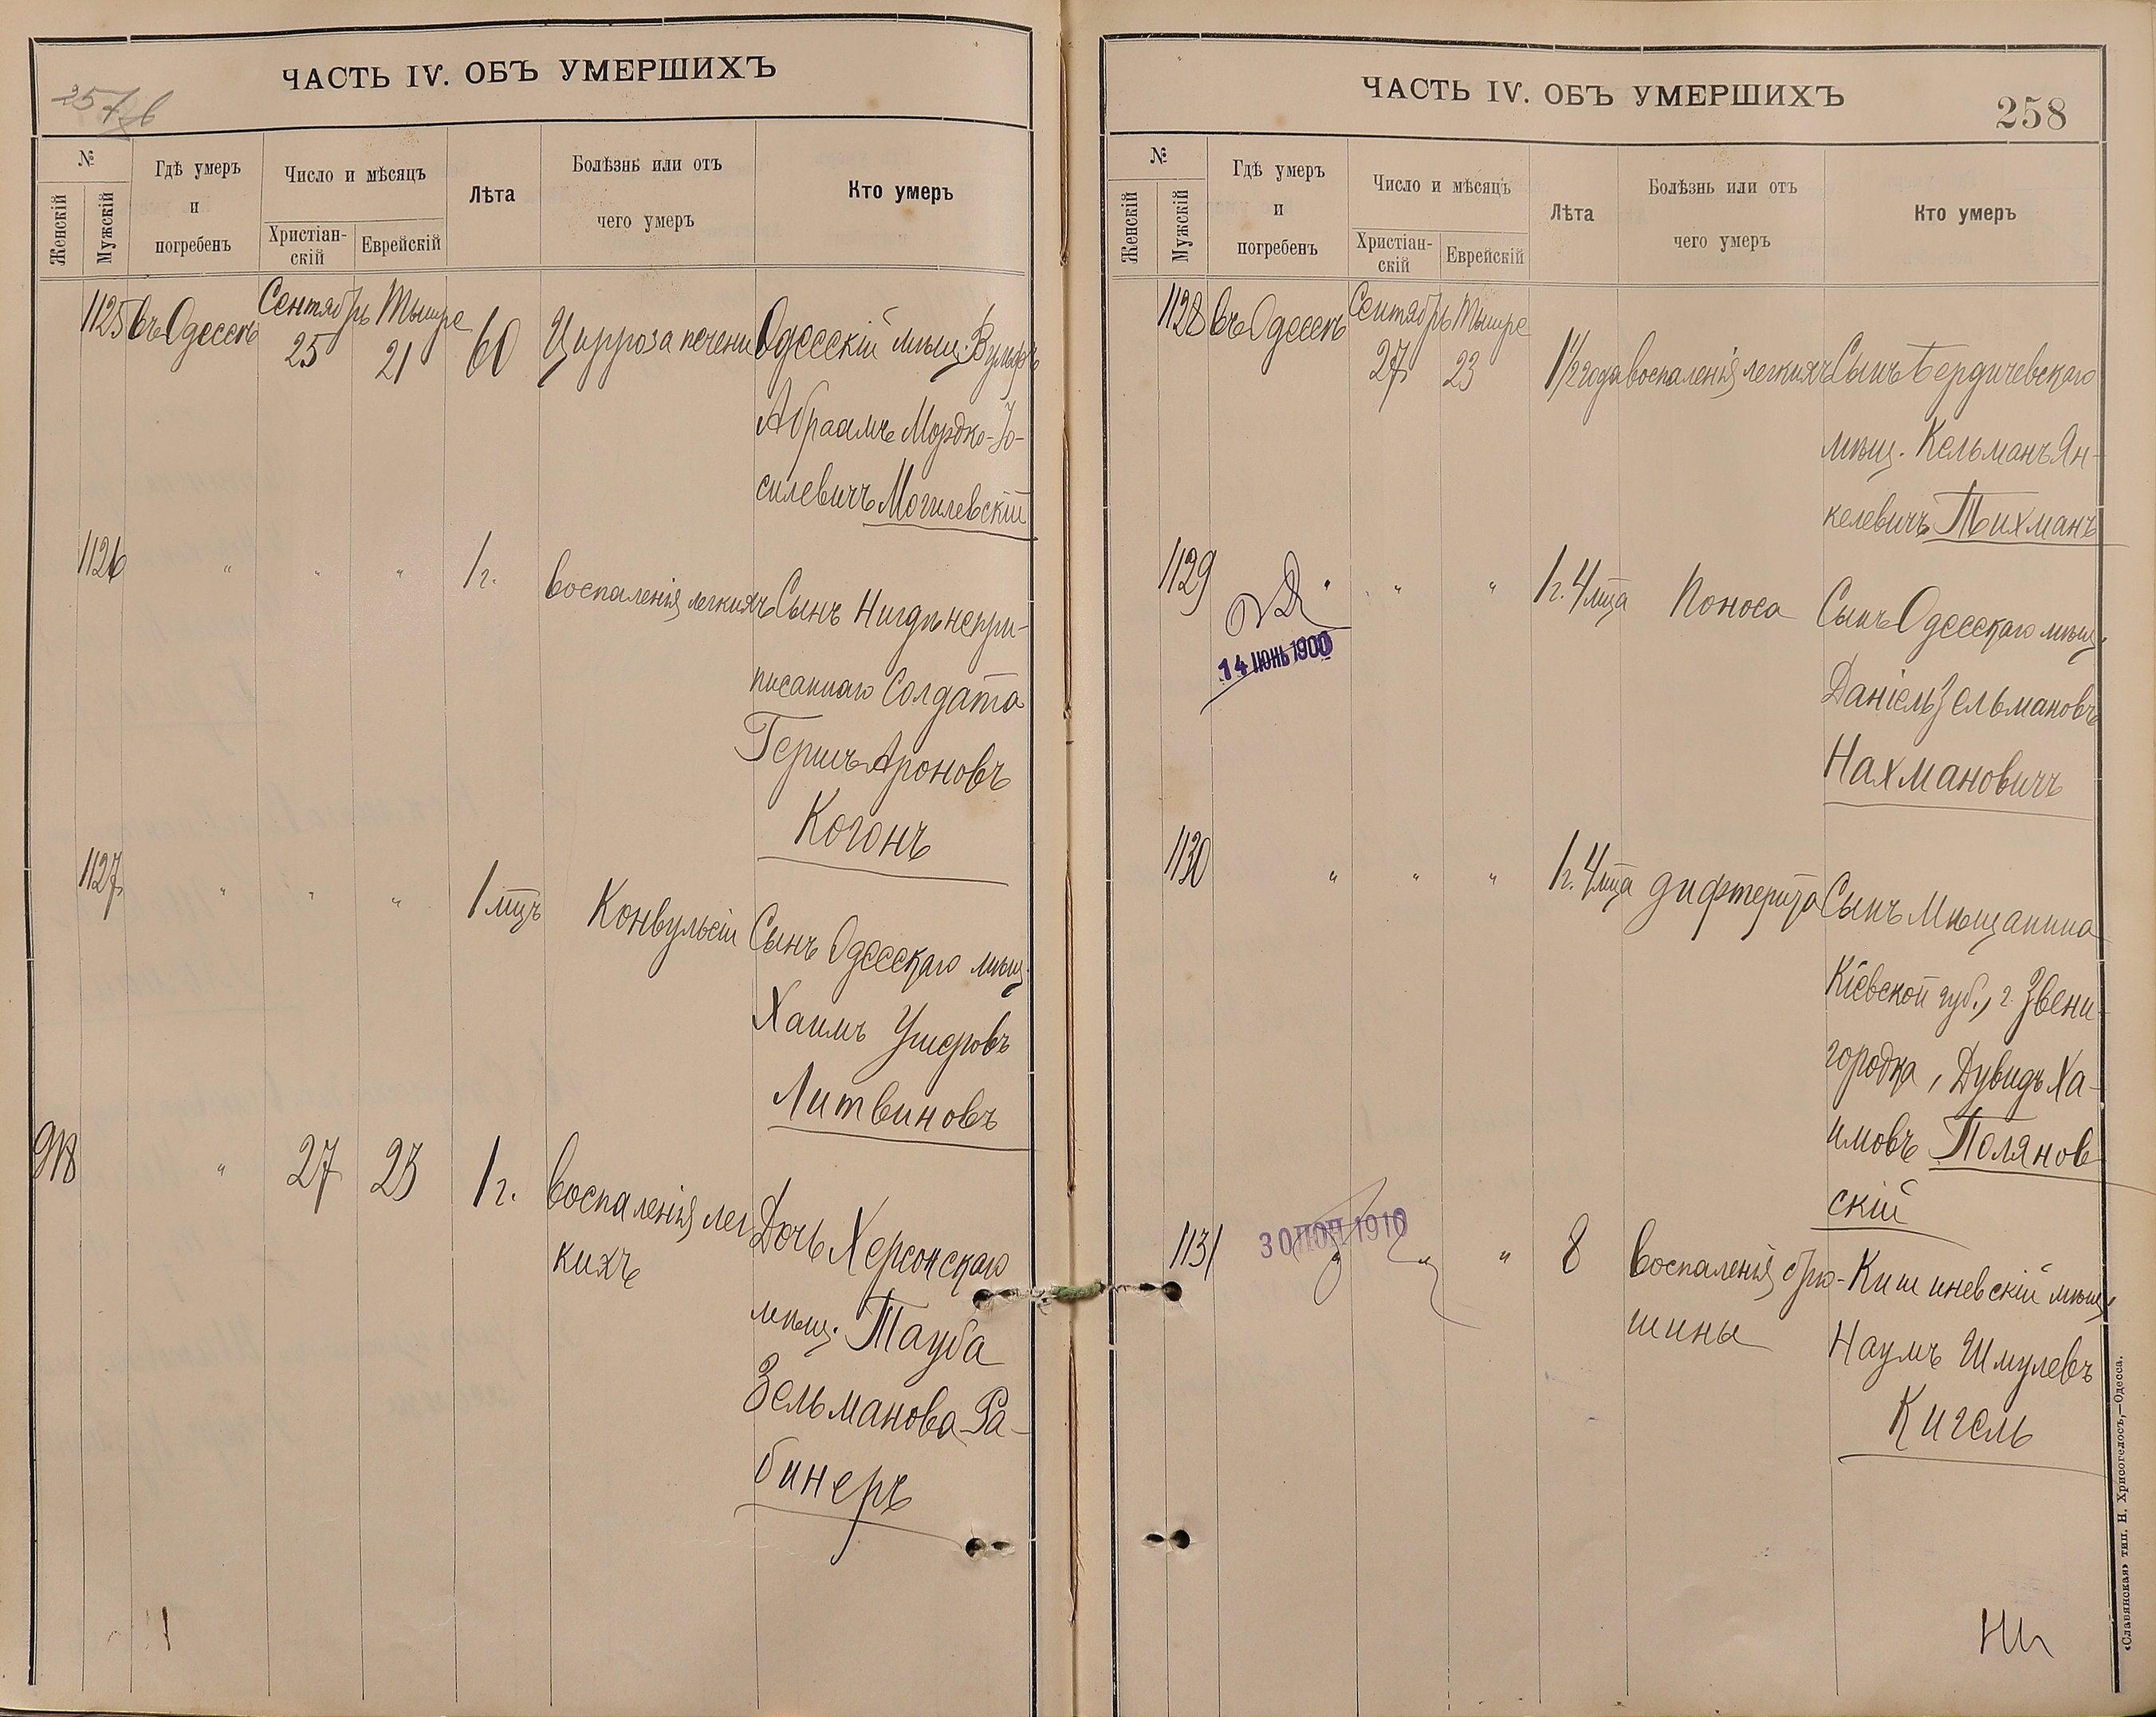 ЧАСТЬ IV. ОБЪ УМЕРШИХЪ
257б
№
Женскій
Мужскій
Гдѣ умеръ
и
погребенъ
Число и мѣсяцъ
Христіан-
скій
Еврейскій
Лѣта
Болѣзнь или отъ
чего умеръ
Кто умеръ
1125 въ Одессѣ Сентябрь 25 Тышре 21 60 Цирроза печени Одесскій мѣщ. Вульфъ
Абраамъ Мордко-Іо-
силевичъ Могилевскій
1126 " " " 1 г. воспаленія легкихъ Сынъ Нигдѣ непри-
писаннаго Солдата
Гершъ Ароновъ
Когонъ
1127 " " " 1 мцъ Конвульсіи Сынъ Одесскаго мѣщ.
Хаимъ Ушеровъ
Литвиновъ
918 " 27 23 1 г. воспаленія лег Дочь Херсонскаго
кихъ
мѣщ. Тауба
Зельманова Ра-
бинеръ
ЧАСТЬ IV. ОБЪ УМЕРШИХЪ
258
№
Женскій
Мужскій
Гдѣ умеръ
и
погребенъ
Число и мѣсяцъ
Христіан-
скій
Еврейскій
Лѣта
Болѣзнь или отъ
чего умеръ
Кто умеръ
1128 въ Одессѣ Сентябрь 27 Тышре 23 1 1/2 года воспаленія легкихъ Сынъ Бердичевскаго
мѣщ. Кельманъ Ян-
келевичъ Тихманъ
1129 " " " 1 г. 4 мца Поноса Сынъ Одесскаго мѣщ.
14 ІЮНЬ 1900
Даніель Зельмановъ
Нахмановичъ
1130 " " " 1 г. 4 мца дифтерита Сынъ Мѣщанина
Кіевской губ., г. Звени-
городка, Дувидъ Ха-
имовъ Полянов
скій
30 1910
1131 " " " 8 воспаленія брю- Кишиневскій мѣщ.
шины Наумъ Шмулевъ
Кигель
«Славянская» тип. Н. Хрисогелосъ,—Одесса.